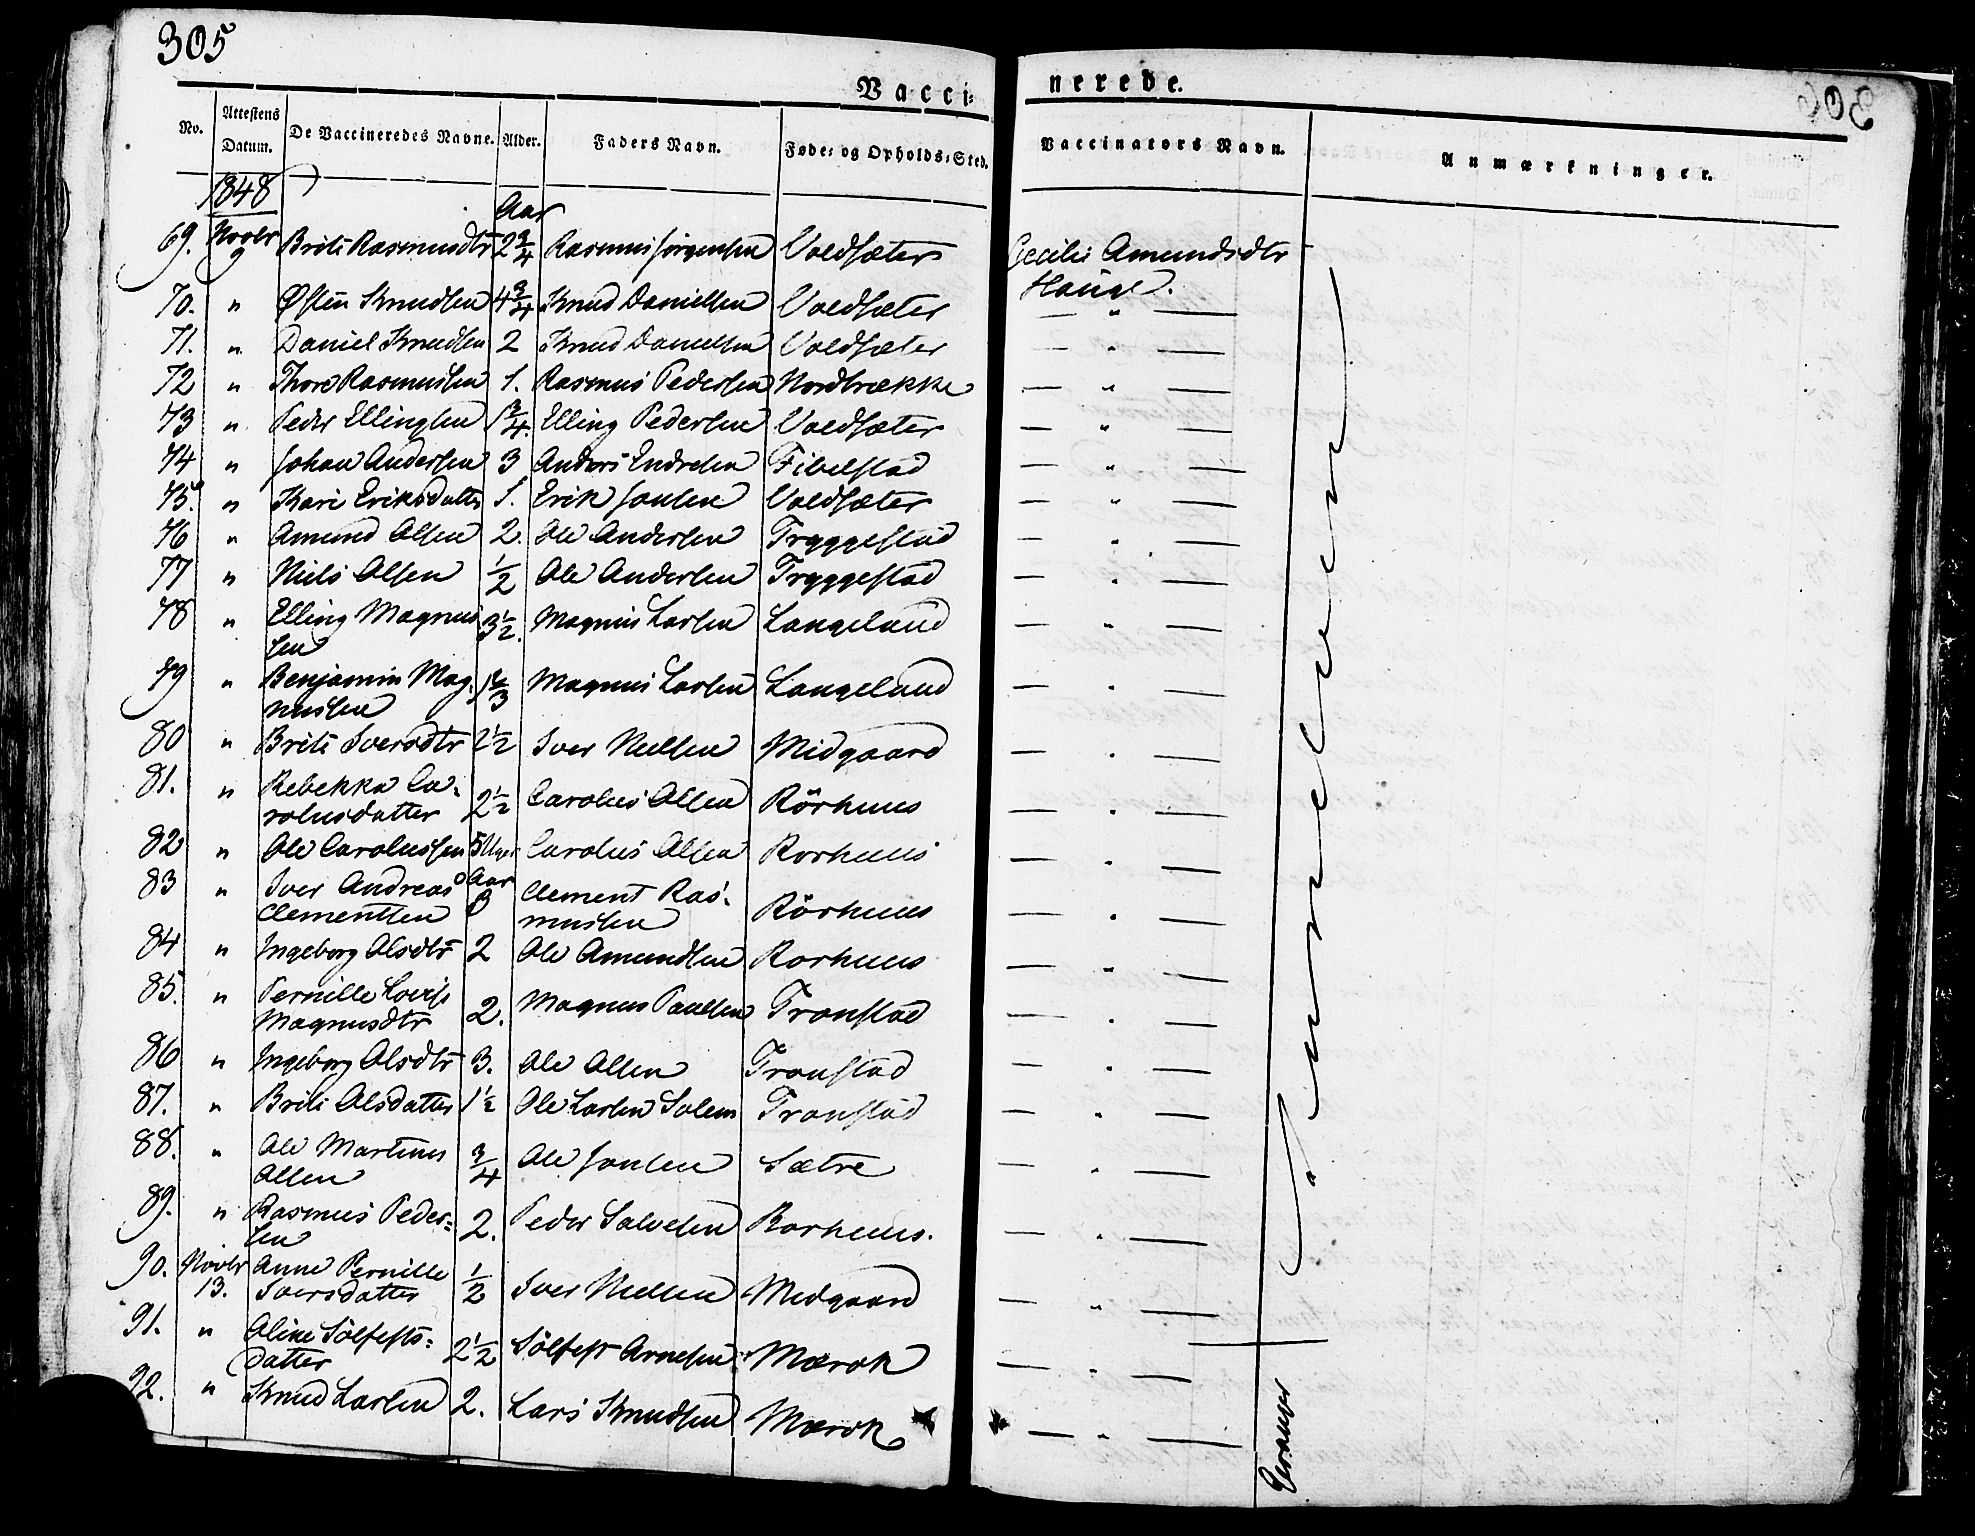 305
Vaccinerede.
No. Attestens Datum. De Vaccineredes Navne. Alder. Faders Navn. Føde- og Opholds-Sted. Vaccinators Navn. Anmærkninger.
1848 Aar
69. Novbr 9 Brite Rasmusdtr 2 3/4 Rasmus Jørgensen Voldsæter Cecilie Amundsdtr
Hauge.
70. " Østen Knudsen 4 3/4 Knud Danielsen Voldsæter — " —
71. " Daniel Knudsen 2 Knud Danielsen Voldsæter — " —
72 " Thore Rasmussen 1. Rasmus Pedersen Nordbrække — " —
73 " Peder Ellingsen 1 3/4. Elling Pedersen Voldsæter — " —
74 " Johan Andersen 3 Anders Endresen Fibelstad — " —
75. " Kari Eriksdatter 1. Erik Jonsen Voldsæter — " —
76 " Amund Olsen 2. Ole Andersen Tryggestad — " —
77 " Niels Olsen 1/2 Ole Andersen Tryggestad — " —
78 " Elling Magnus
sen 3 1/2. Magnus Larsen Langeland — " —
79 " Benjamin Mag-
nussen Magnus Larsen Langeland — " —
80 " Brite Iversdtr 2 1/2 Iver Nielsen Midgaard — " —
81. " Rebekka Ca-
rolusdatter 2 1/2 Carolus Olsen Rörhuus — " —
82 " Ole Carolussen 5 Uger Carolus Olsen Rorhuus — " —
83 " Iver Andreas Aar Clement Ras-
Clementsen 3 mussen Rörhuus — " —
84 " Ingeborg Olsdtr 2 Ole Amundsen Rorhuus — " —
85. " Pernille Lovise
Magnusdtr 2. Magnus Paulsen Tronstad — " —
86 " Ingeborg Olsdtr 3. Ole Olsen Tronstad — " —
87. " Brite Olsdatter 1 1/2 Ole Larsen Solem Tronstad — " —
88. " Ole Martinus
Olsen 3/4 Ole Jonsen Sætre — " —
89. " Rasmus Peder=
sen 2. Peder Salvesen Rorhuus. — " —
90. Novbr 13. Anne Pernille
Iversdatter 1/2 Iver Nielsen Midgaard — " —
91. " Oline Sölfests=
datter 2 1/2 Sölfest Arnesen Mærok — " —
92. " Knud Larsen 2. Lars Knudsen Mærok — " —
Sunnelven
Geranger